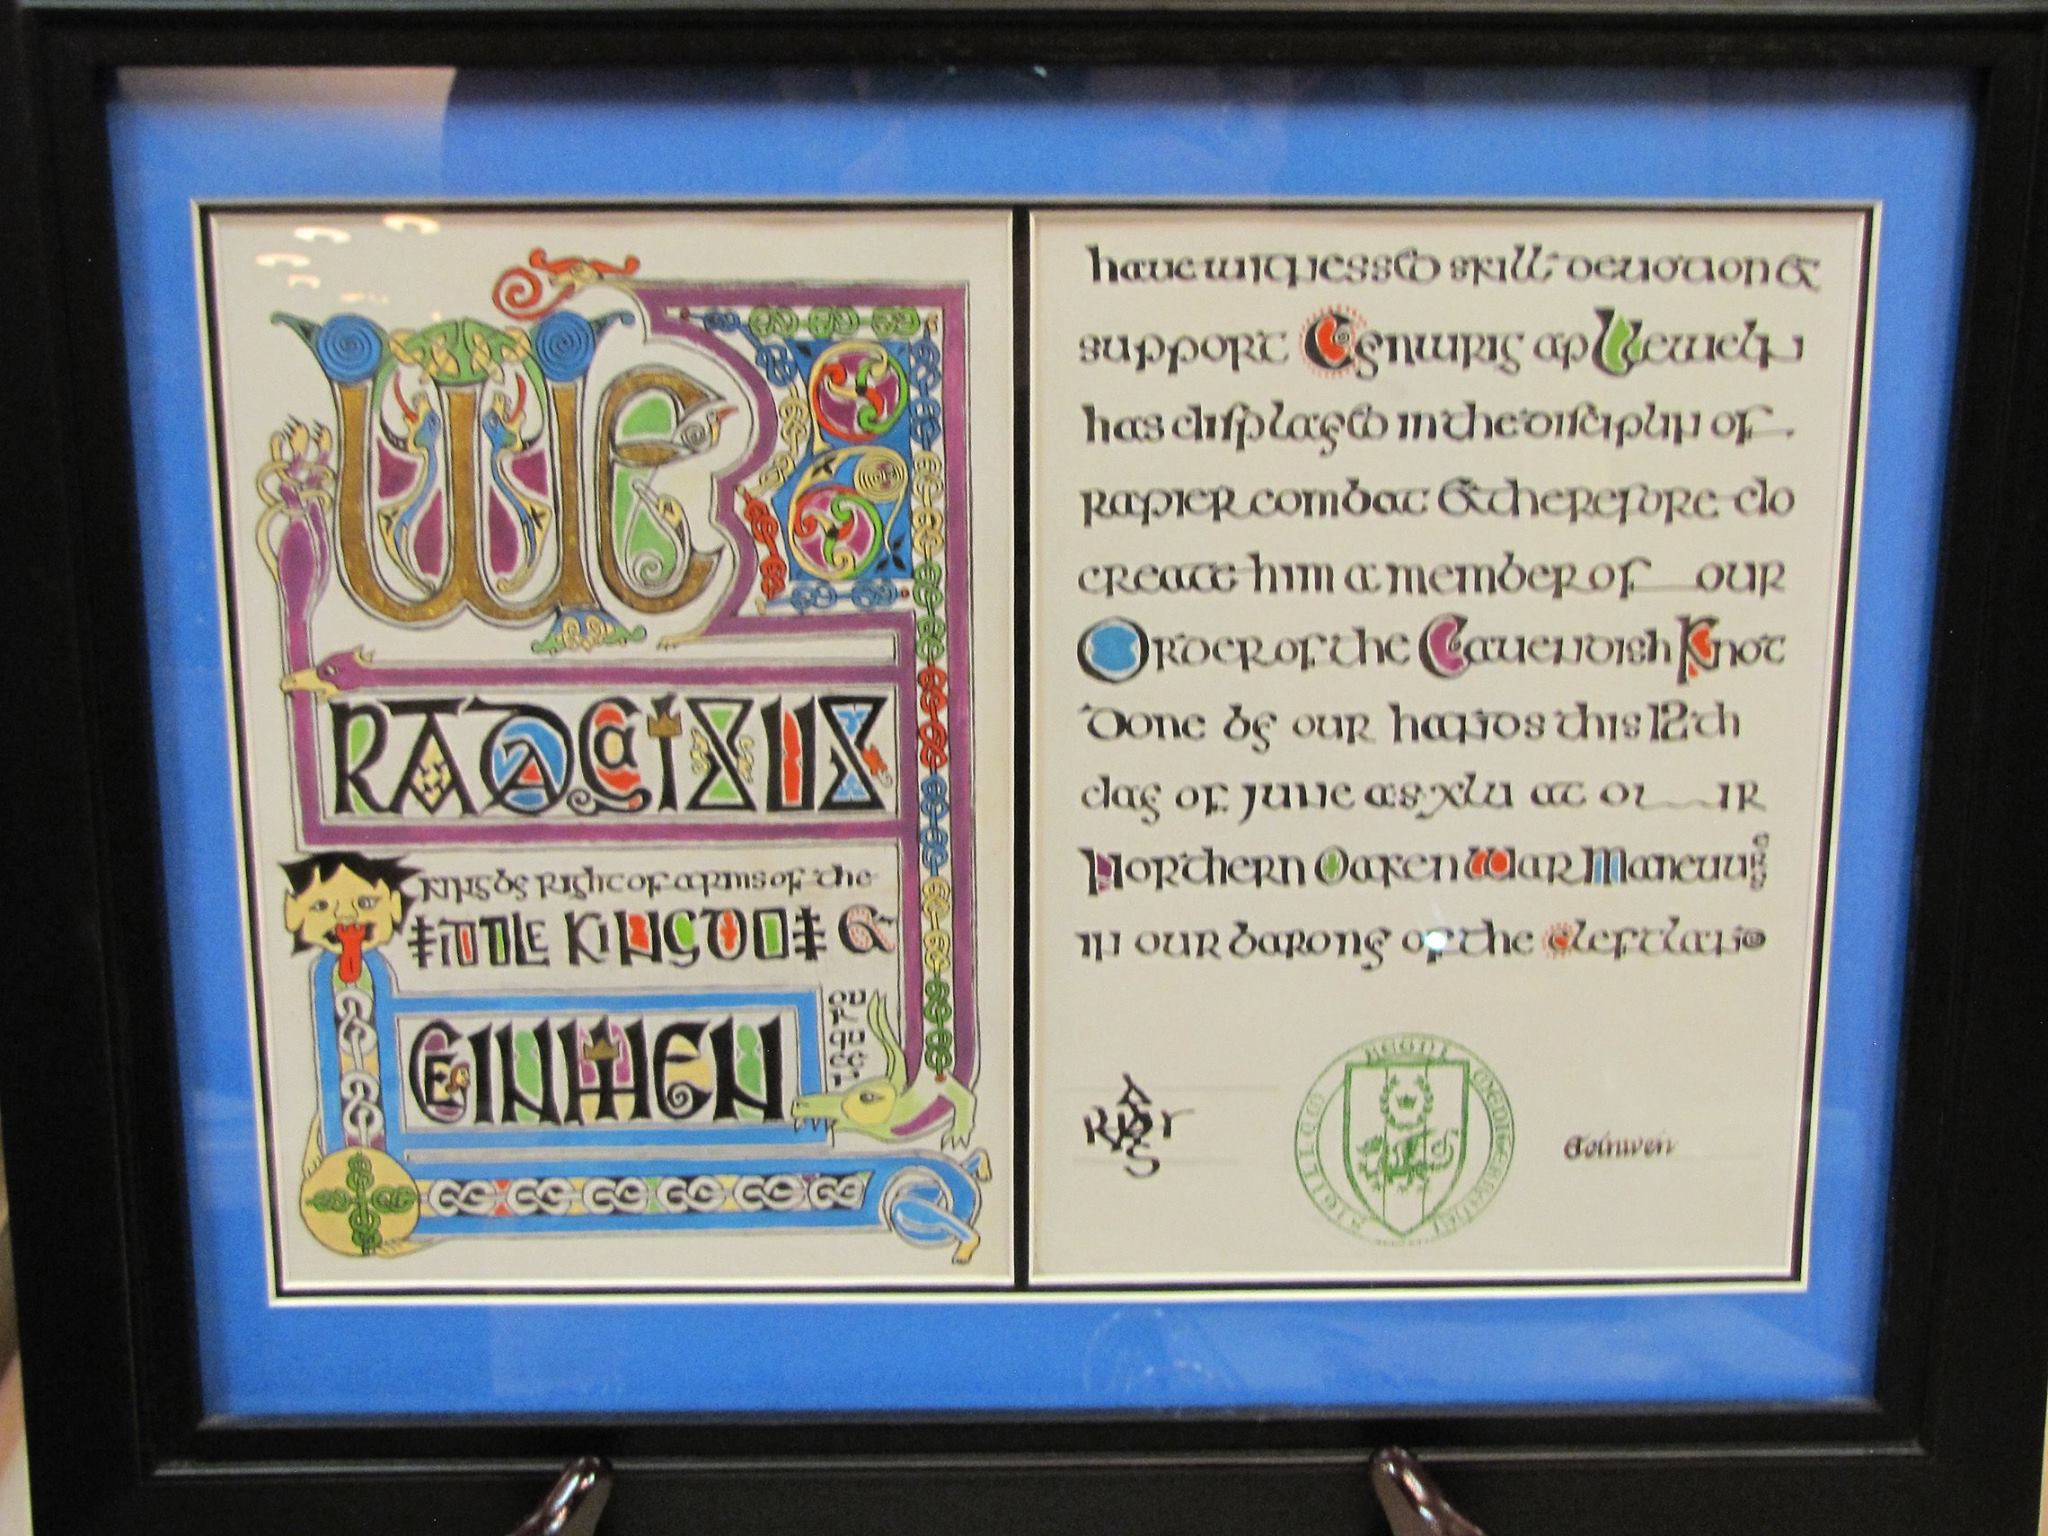 WE
RADCIXUS
King by right of arms of the
MIDDLE KINGDOM &
EDINWEN
our queen
have witnessed skill devotion &
support Cynwrig ap Llewelyn
has displayed in the disciplin of
rapier combat & therefore do
create him a member of our
Order of the Cavendish Knot
Done by our hands this 12th
day of June as xlv at our
Northern Oaken War Maneuvers
in our barony of the Cleftlands
Eoinwen